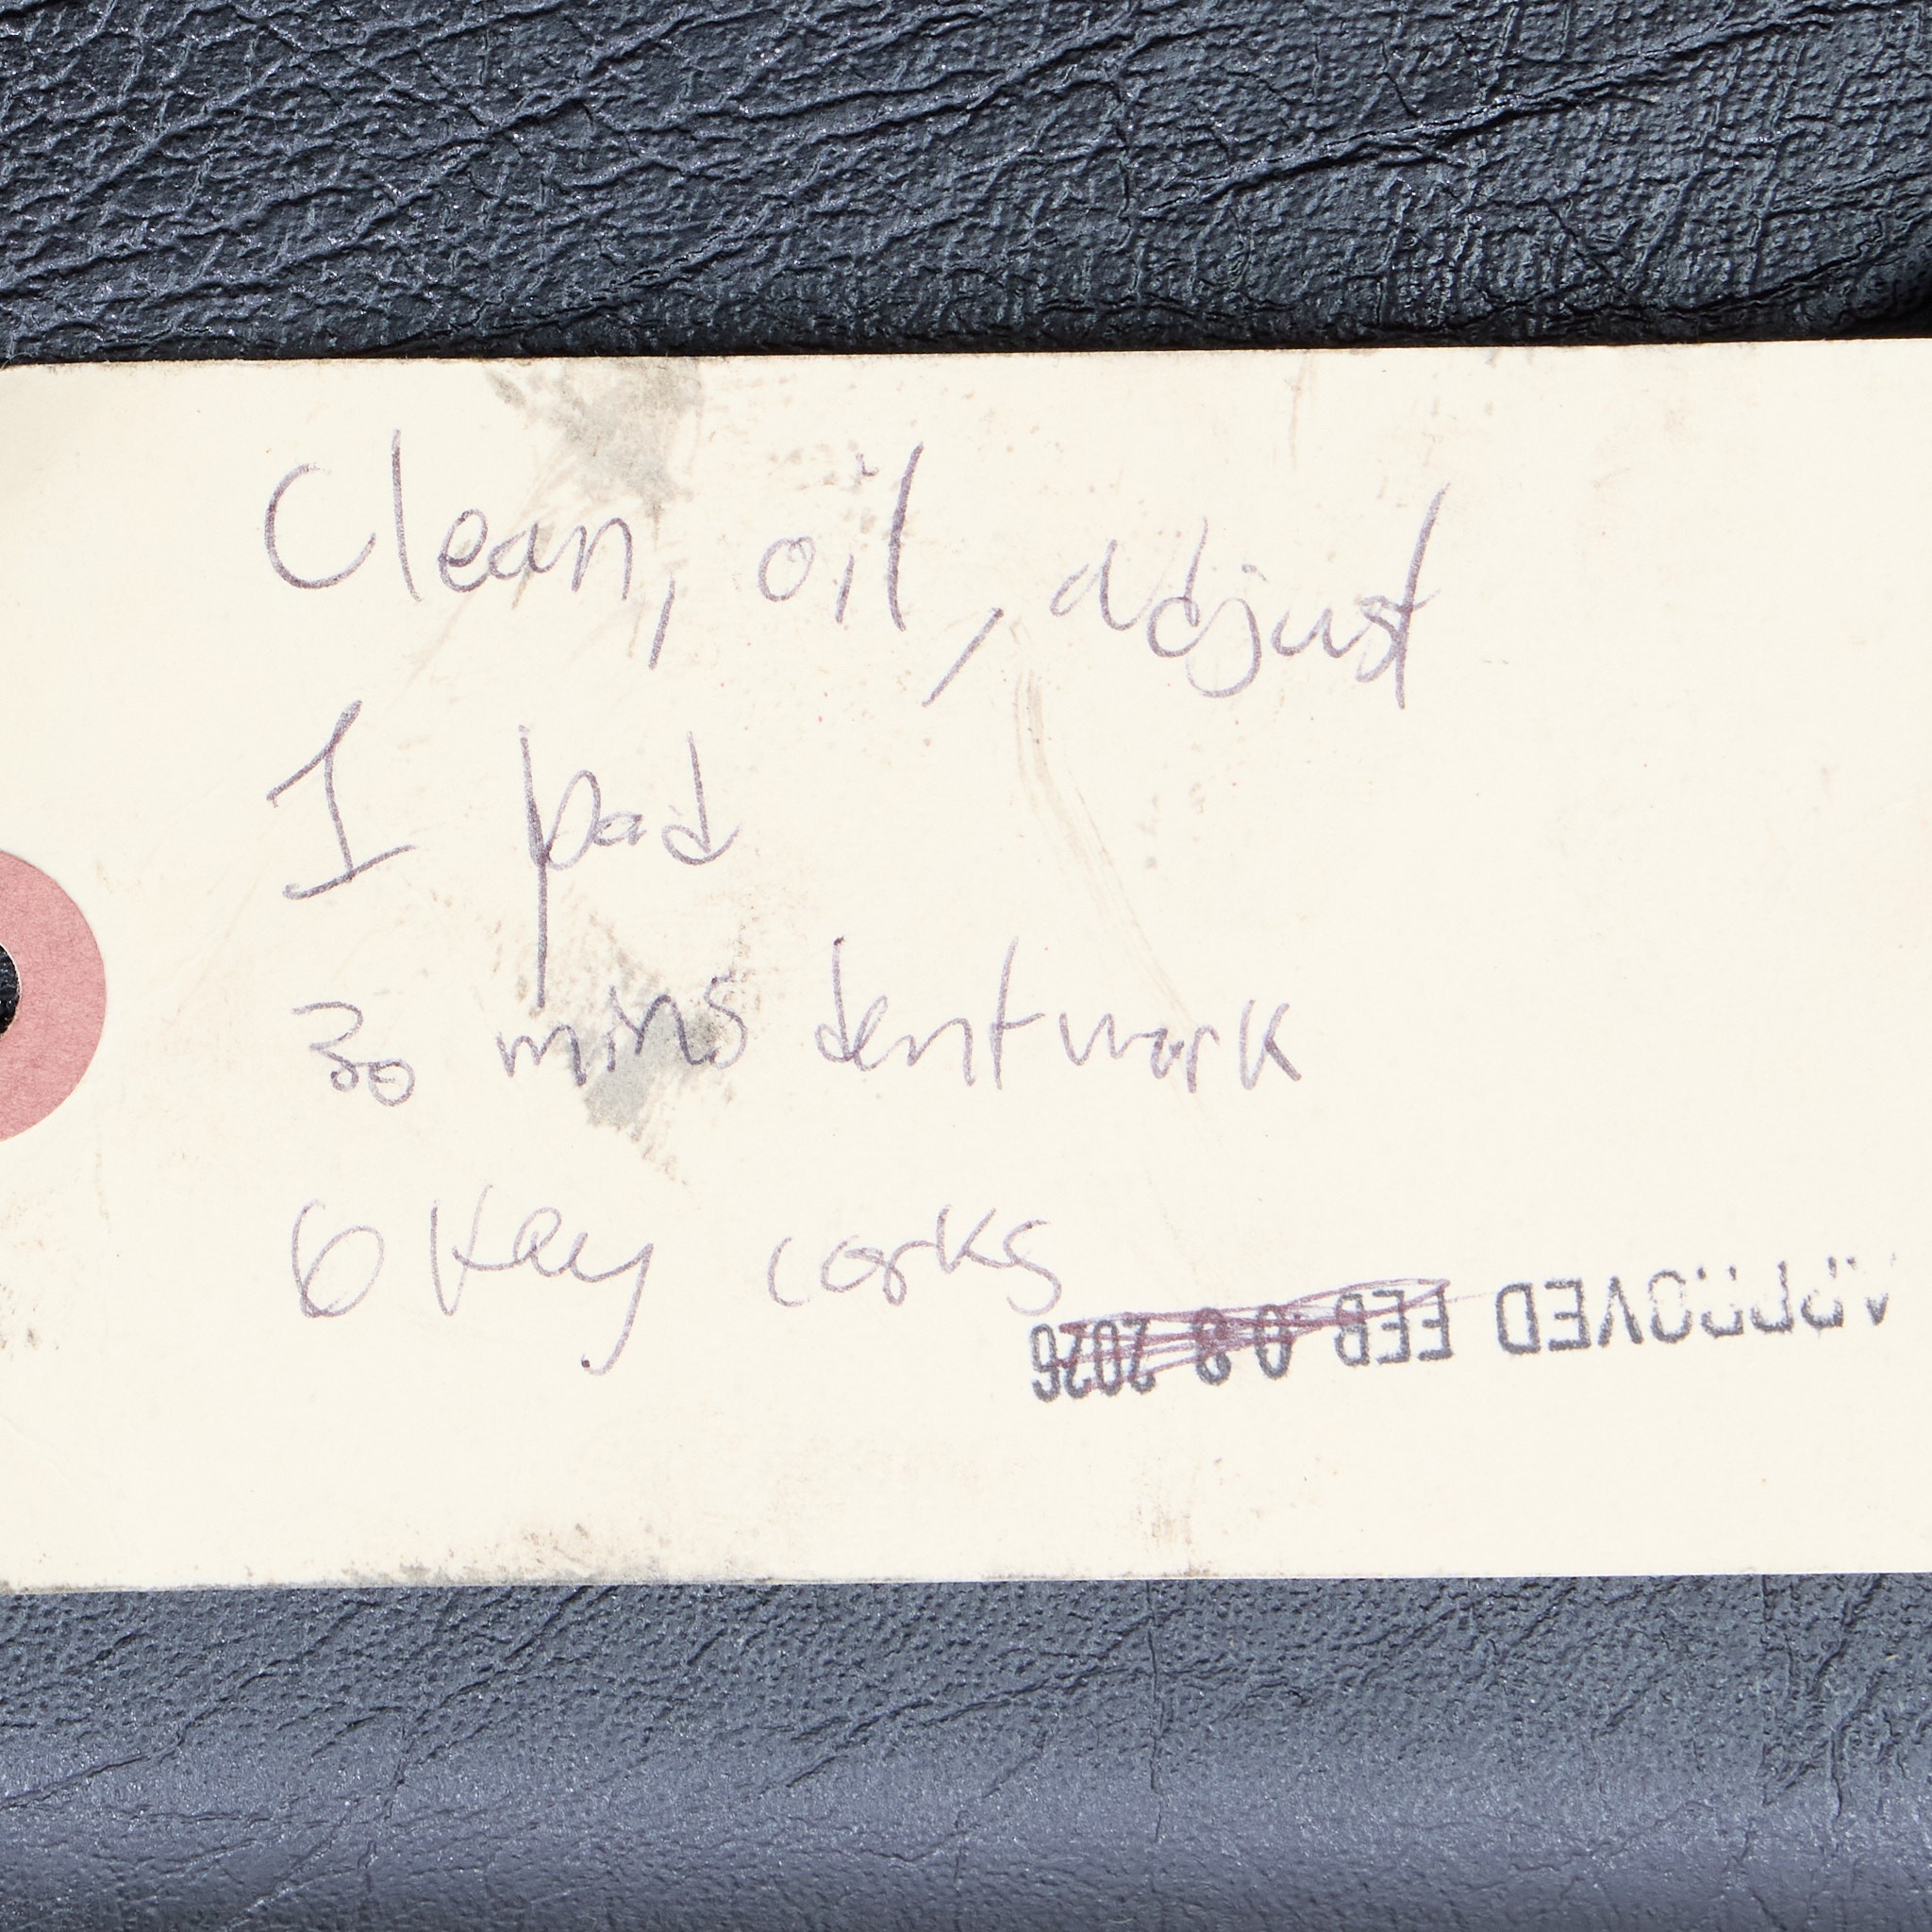 Clean, oil, adjust
1 pad
30 mins dentwork
6 Key corks
APPROVED FEB 03 2026